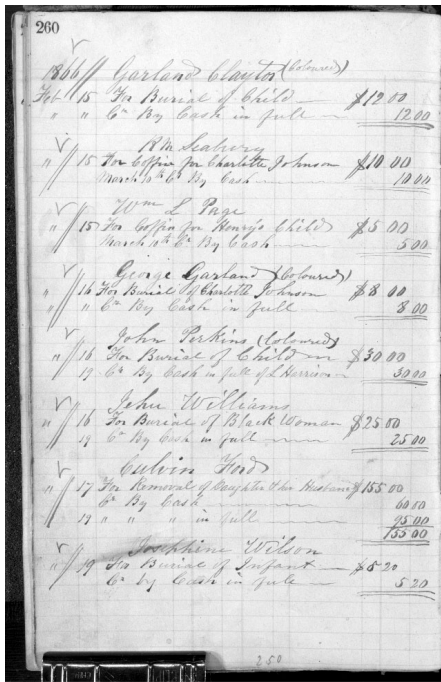 260
1866 Garland Clayton (Coloured)
Feb 15 For Burial of Child $12 00
" " Cr By Cash in full 12 00
R M Seabury
" 15 For Coffin for Charlotte Johnson $10 00
March 10th Cr By Cash 10 00
Wm L Page
" 15 For Coffin for Henry's Child $5 00
March 10th Cr By Cash 5 00
George Garland (Coloured)
" 16 For Burial of Charlotte Johnson $8 00
" " Cr By Cash in full 8 00
John Perkins (Coloured)
" 16 For Burial of Child $30 00
" 19 Cr By Cash in full of L Harrison 30 00
John Williams
" 16 For Burial of Black Woman $25 00
19 Cr By Cash in full 25 00
Culvin Ford
" 17 For Removal of Daughter & her Husband $155 00
Cr By Cash 60 00
19 " " " in full 95 00
155 00
Josephine Wilson
" 19 For Burial of Infant $5 20
Cr by Cash in full 5 20
250